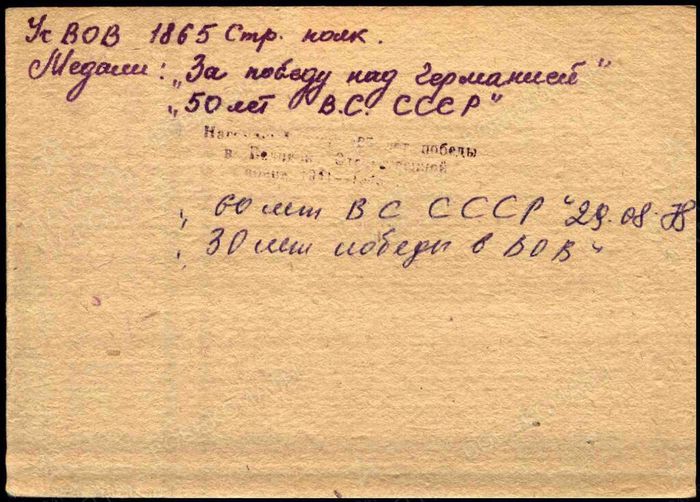 Уч ВОВ 1865 Стр. полк.
Медали: „За победу над Германией"
„50 лет В.С. СССР"
лет победы
в Великой Отечественной
войне 1941-
„60 лет ВС СССР" 29.08.78
„30 лет победы в ВОВ"